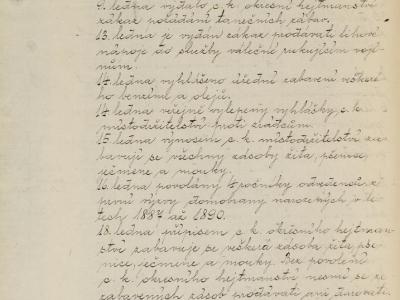 9. ledna vydalo c. k. okresní hejtmanství
zákaz pořádání tanečních zábav.
13. ledna je vydán zákaz prodávati lihové
nápoje do služby válečné rukujícím voji-
nům.
14. ledna vyhlášeno úřední zabavení veškeré-
ho benzinu a olejů.
14. ledna veřejně vylepeny vyhlášky c. k.
místodržitelství proti zrádcům.
15. ledna výnosem c. k. místodržitelství za-
bavují se všechny zásoby žita, pšenice,
ječmene a mouky.
16. ledna povoláni 4 ročníky odvedenců z
první výzvy domobrany narozených v le-
tech 1887 až 1890.
18. ledna přípisem c. k. okresního hejtman-
ství zabavuje se veškerá zásoba žita, pše-
nice, ječmene a mouky. Bez povolení
c. k. okresního hejtmanství nesmí se ze
zabavených zásob prodávati ani darovati